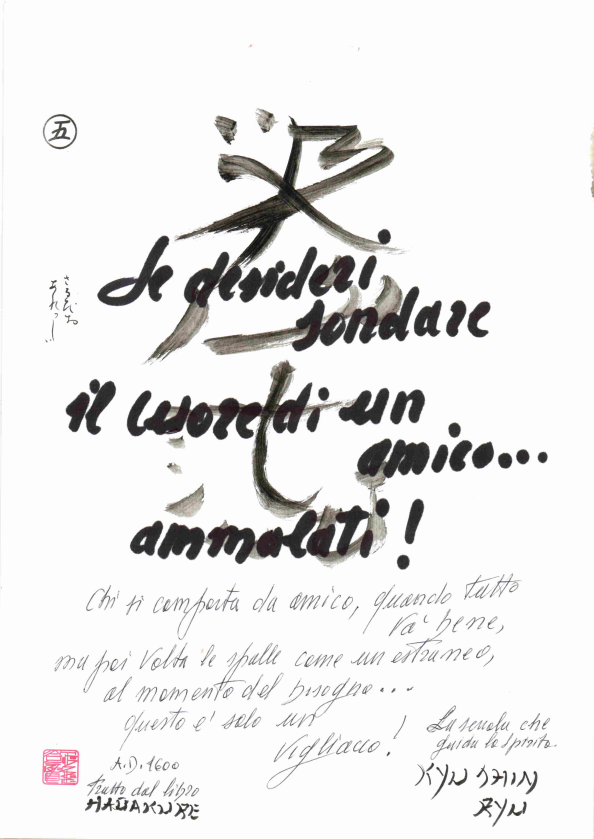 五
Se desideri
sondare
il cuore di un
amico...
ammalati!
Chi si comporta da amico, quando tutto
va' bene,
ma poi volta le spalle come un estraneo,
al momento del bisogno...
questo e' solo un
vigliacco!
La scuola che
guida lo spirito.
KYN SHIN
RYN
A.D. 1600
Tratto dal libro
HAGAKURE